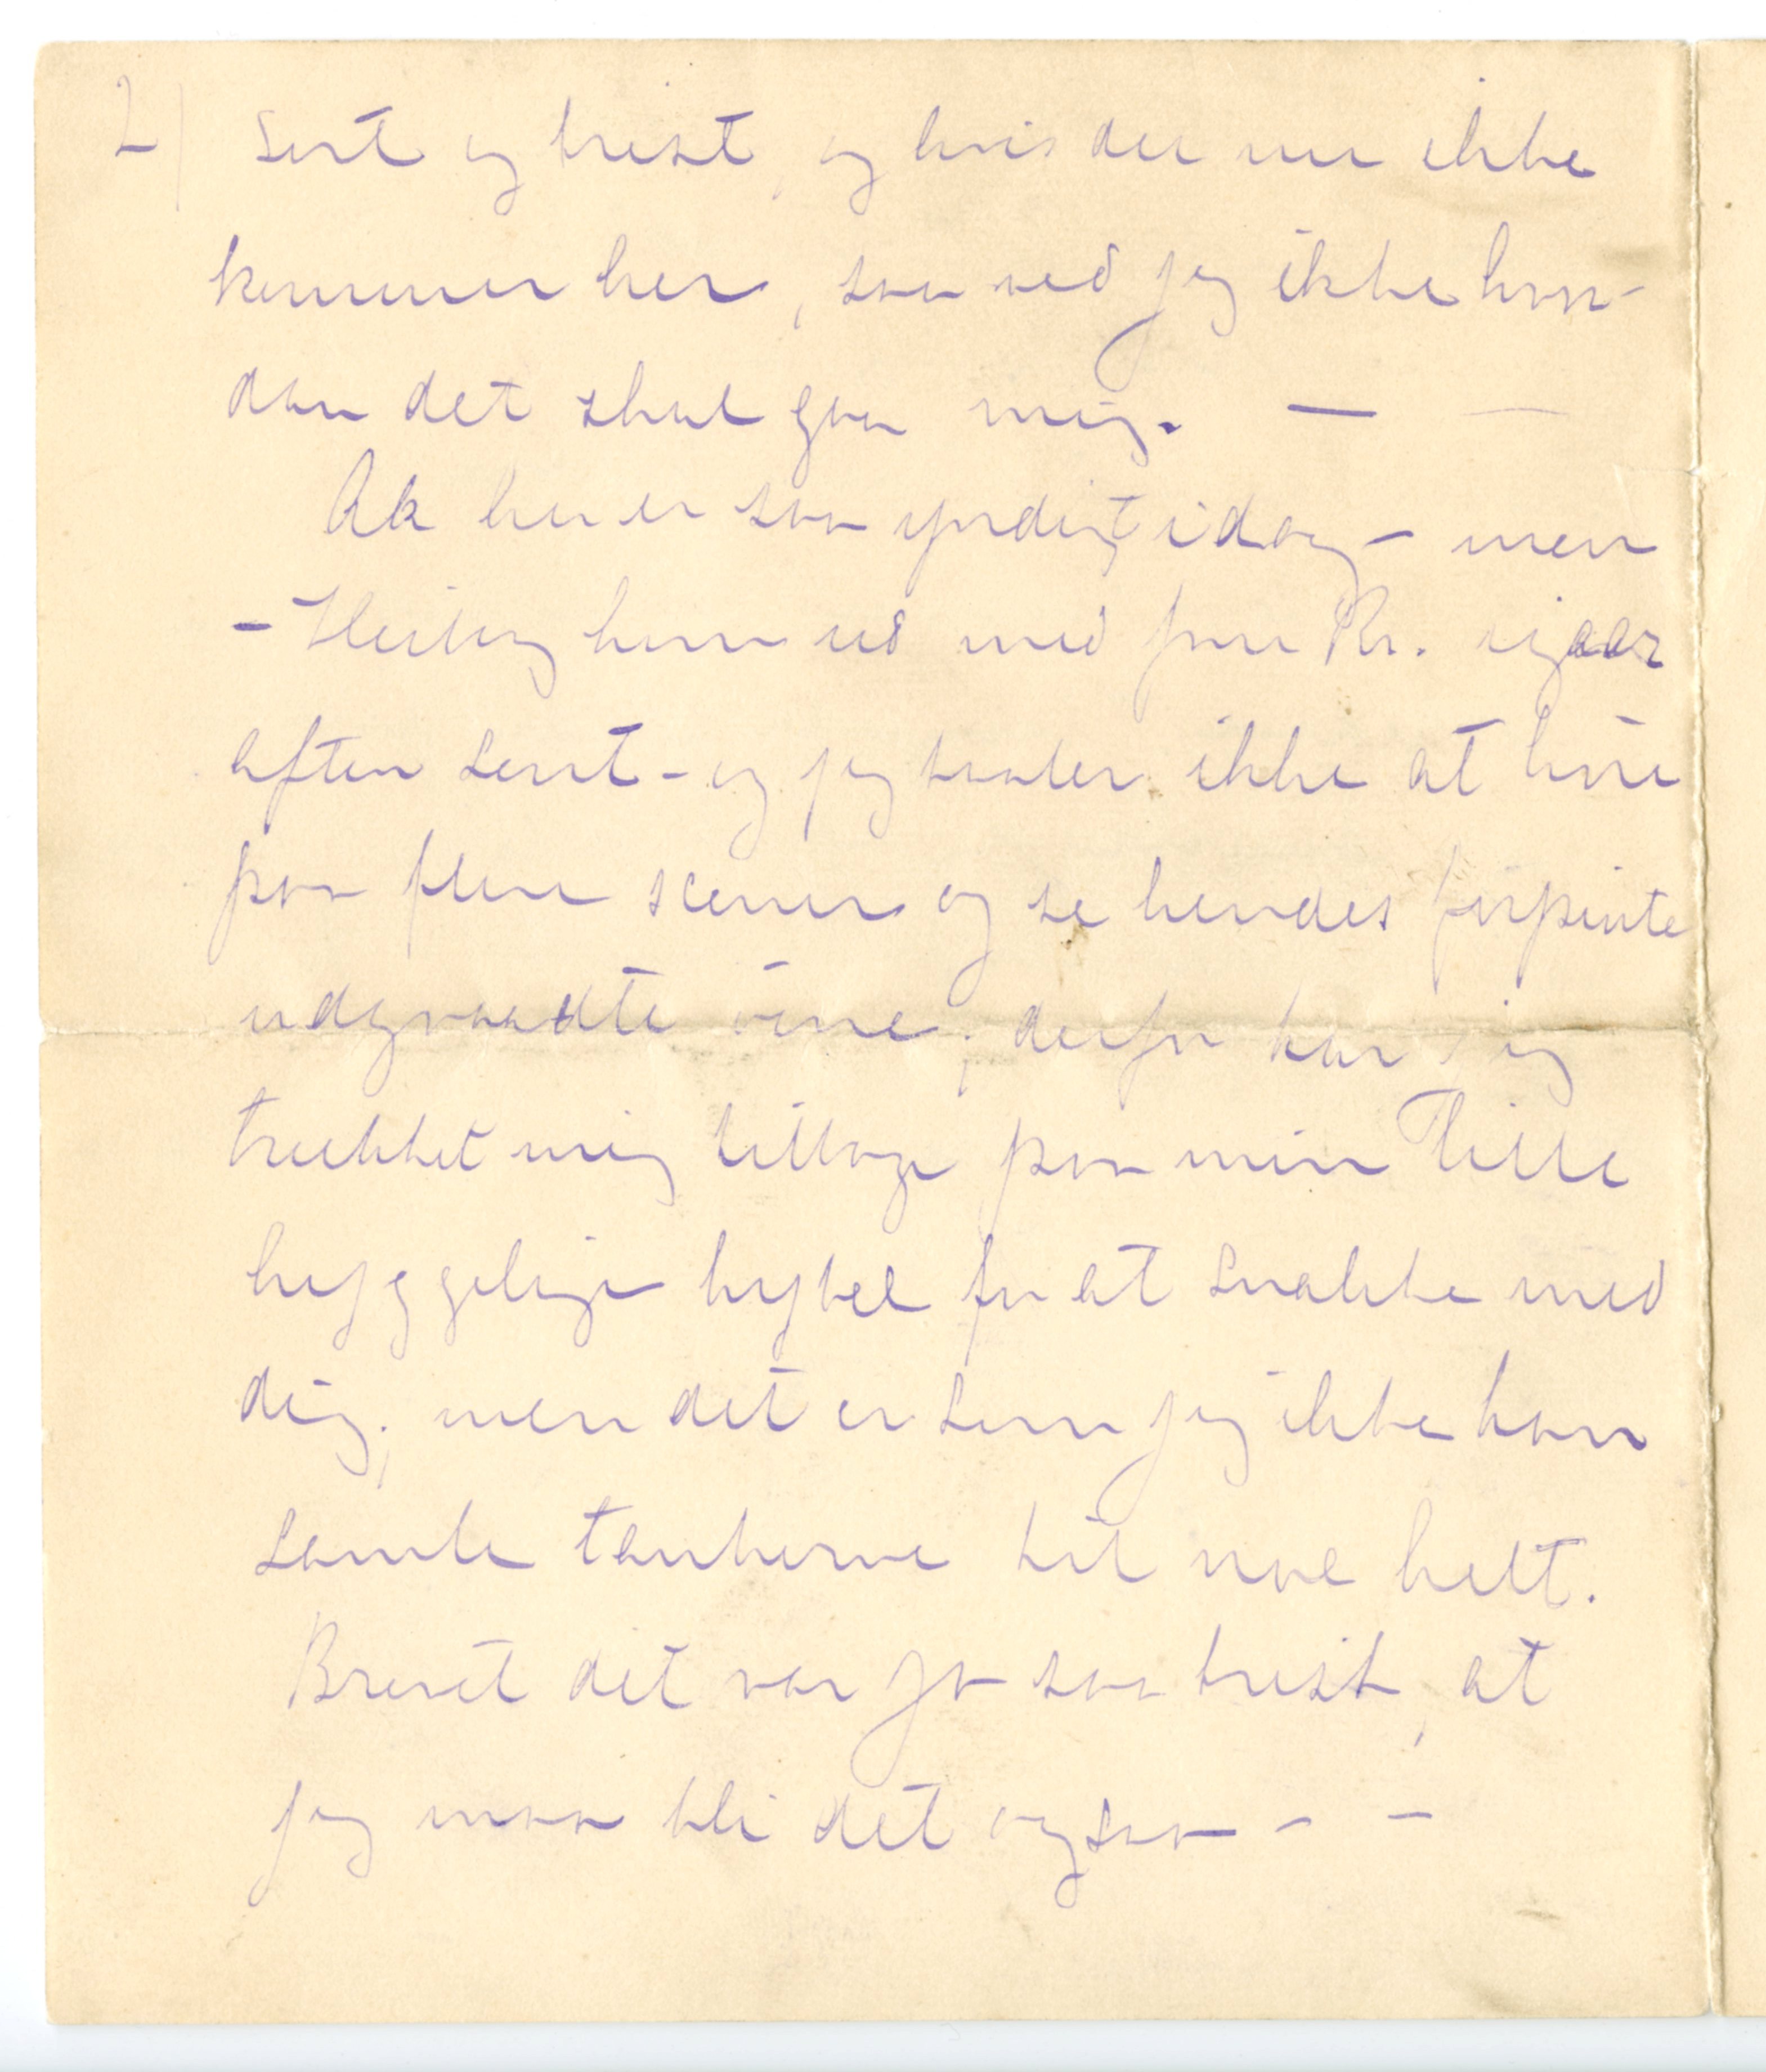 2) sort og trist, og hvis du nu ikke
kommer her, saa ved jeg ikke hvor-
dan det skal gaa mig. — —
Ak her er saa yndigt idag – men
– Heiberg kom ud med fru Kr. igaar
aften sent – og jeg taaler ikke at høre
paa flere scener og se hendes forpinte
udgraadte øine; derfor har jeg
trukket mig tilbage paa min lille
hyggelige hybel for at snakke med
dig; men det er som jeg ikke kan
samle tankerne til noe helt.
Brevet det var jo saa trist, at
jeg maa bli det ogsaa – –